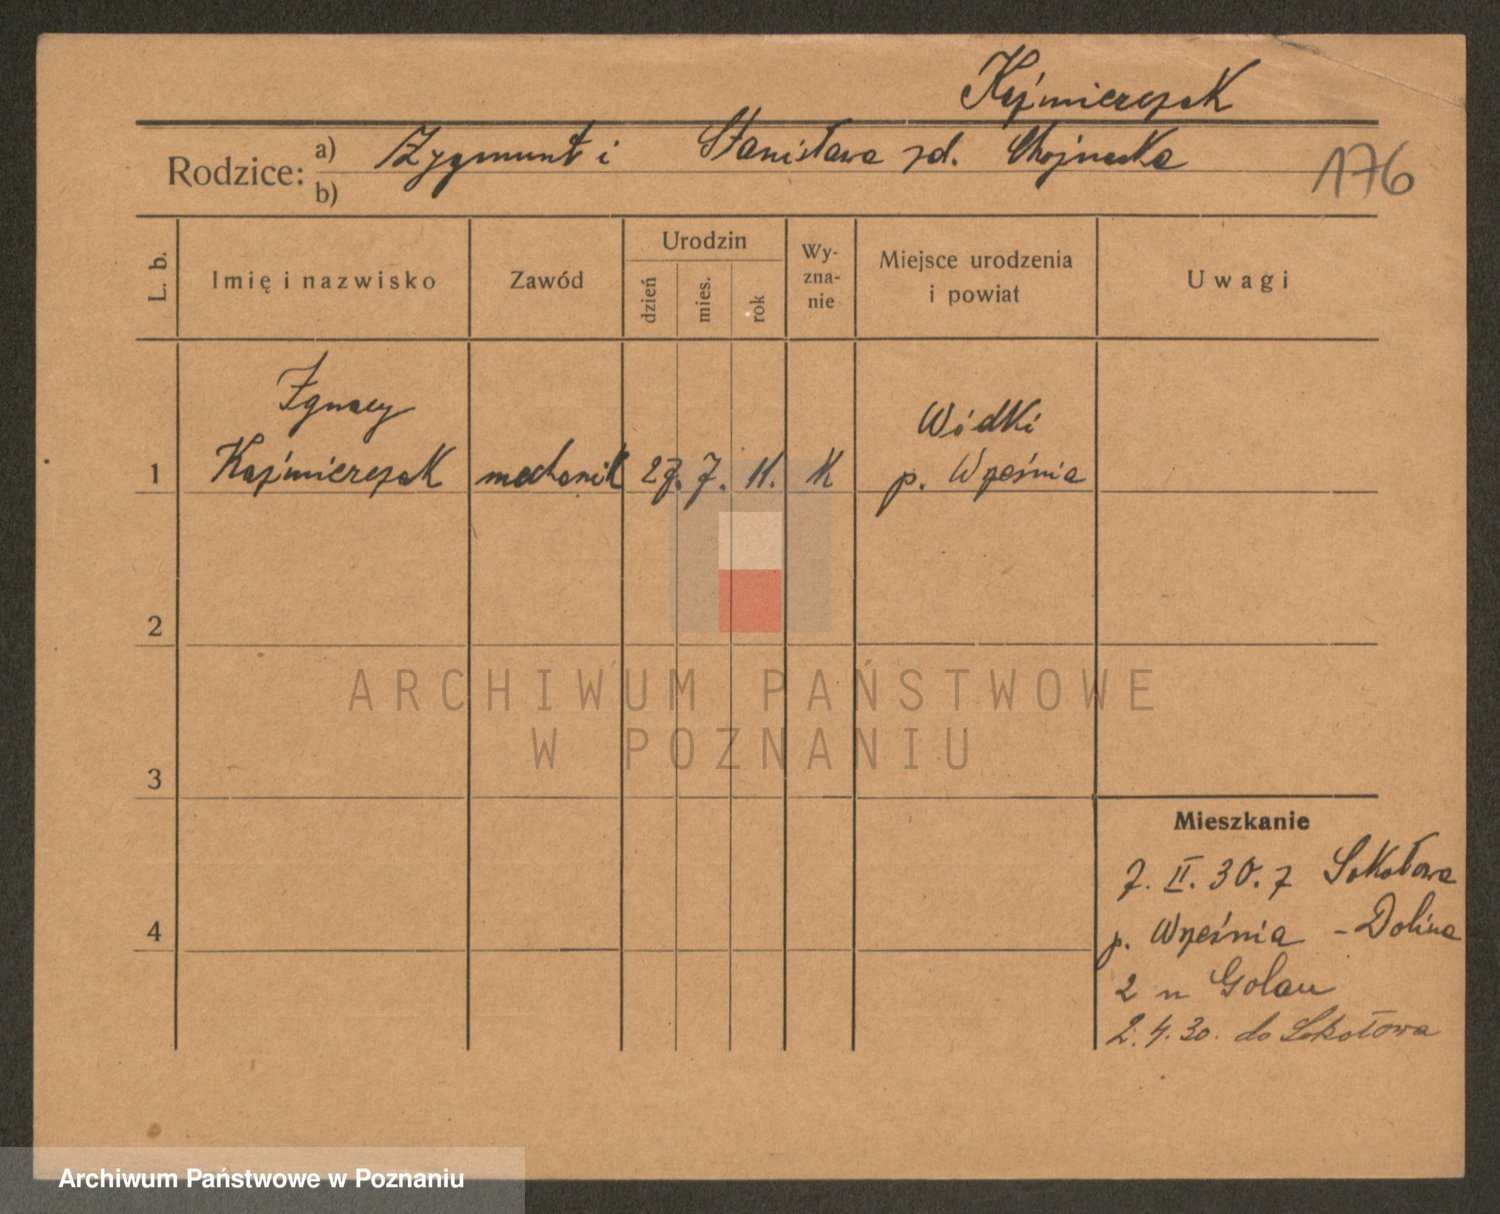 Kaźmierczak
Rodzice: a) Zygmunt i Stanisława zd. Chojnacka
b)
176
L. b. Imię i nazwisko Zawód Urodzin dzień mies. rok Wy-zna-nie Miejsce urodzenia i powiat Uwagi
Ignacy Wódki
1 Kaźmierczak mechanik 27. 7. 11. K p. Września
2
ARCHIWUM PAŃSTWOWE
W POZNANIU
3
Mieszkanie
7. II. 30. z Sokołowa
4 p. Września - Dolina
2 u
2. 4. 30. do Sokołowa
Archiwum Państwowe w Poznaniu